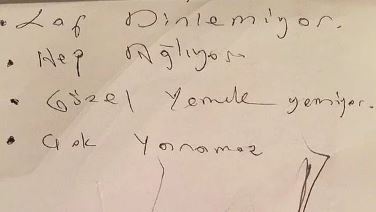 • Laf Dinlemiyor.
• Hep Ağlıyor
• Güzel Yemek yemiyor.
• Çok Yaramaz